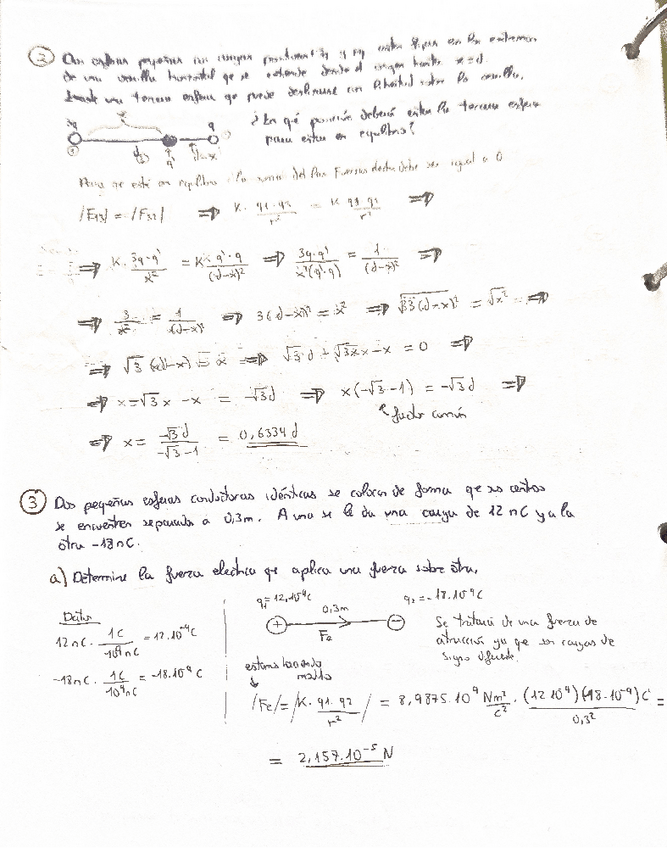 ② Dos esferas pequeñas con cargas positivas 3q y q están fijas en los extremos
de una varilla horizontal que se extiende desde el origen hasta x=d.
una tercera esfera que puede deslizarse con libertad sobre la varilla,
3q q
¿En qué posición deberá estar la tercera esfera
para estar en equilibrio?
x q' d-x
Para que esté en equilibrio la suma del las Fuerzas debe ser igual a 0
⇒ K · q1·q2 / r² = K q1·q2 / r² ⇒
⇒ K · 3q·q' / x² = K · q'·q / (d-x)² ⇒ 3q·q' / x²(q'·q) = 1 / (d-x)² ⇒
⇒ 3 / x² = 1 / (d-x)² ⇒ 3(d-x)² = x² ⇒ √x² ⇒
⇒ √3 (d-x) = x ⇒ = 0 ⇒
⇒ x-√3x -x = -√3d ⇒ x(-√3-1) = -√3d ⇒
factor común
⇒ x = -√3d / -√3-1 = 0,6334 d
③ Dos pequeñas esferas conductoras idénticas se colocan de forma que sus centros
se encuentren separados a 0,3m. A una se le da una carga de 12 nC y a la
otra -18nC.
a) Determine la fuerza electrica que aplica una fuerza sobre otra.
Datos
q1=12.10⁻⁹C 0,3m q2=-18.10⁻⁹C
+ Fe -
12nC · 1C / 10⁹nC = 12.10⁻⁹C
-18nC · 1C / 10⁹nC = -18.10⁻⁹C
Se trataría de una fuerza de
atracción ya que son cargas de
signo diferente.
/Fe/ = /K · q1·q2 / r²/ = 8,9875.10⁹ Nm²/C² · (12.10⁻⁹)(-18.10⁻⁹)C / 0,3² =
= 2,157.10⁻⁵ N